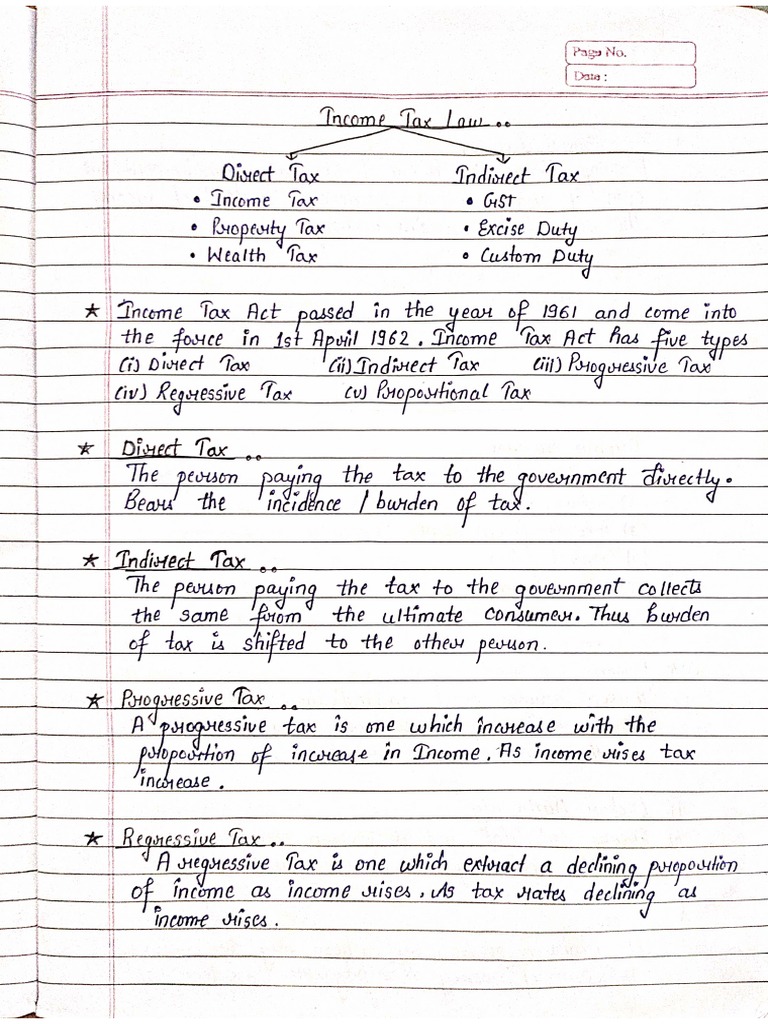 Page No.
Date :
Income Tax Law ..
Direct Tax Indirect Tax
• Income Tax • GST
• Property Tax • Excise Duty
• Wealth Tax • Custom Duty
★ Income Tax Act passed in the year of 1961 and come into
the force in 1st April 1962. Income Tax Act has five types
(i) Direct Tax (ii) Indirect Tax (iii) Progressive Tax
(iv) Regressive Tax (v) Propositional Tax
★ Direct Tax ..
The person paying the tax to the government directly.
Bears the incidence / burden of tax.
★ Indirect Tax ..
The person paying the tax to the government collects
the same from the ultimate consumer. Thus burden
of tax is shifted to the other person.
★ Progressive Tax ..
A progressive tax is one which increase with the
proposition of increase in Income. As income rises tax
increase.
★ Regressive Tax ..
A regressive Tax is one which extract a declining proposition
of income as income rises. As tax rates declining as
income rises.